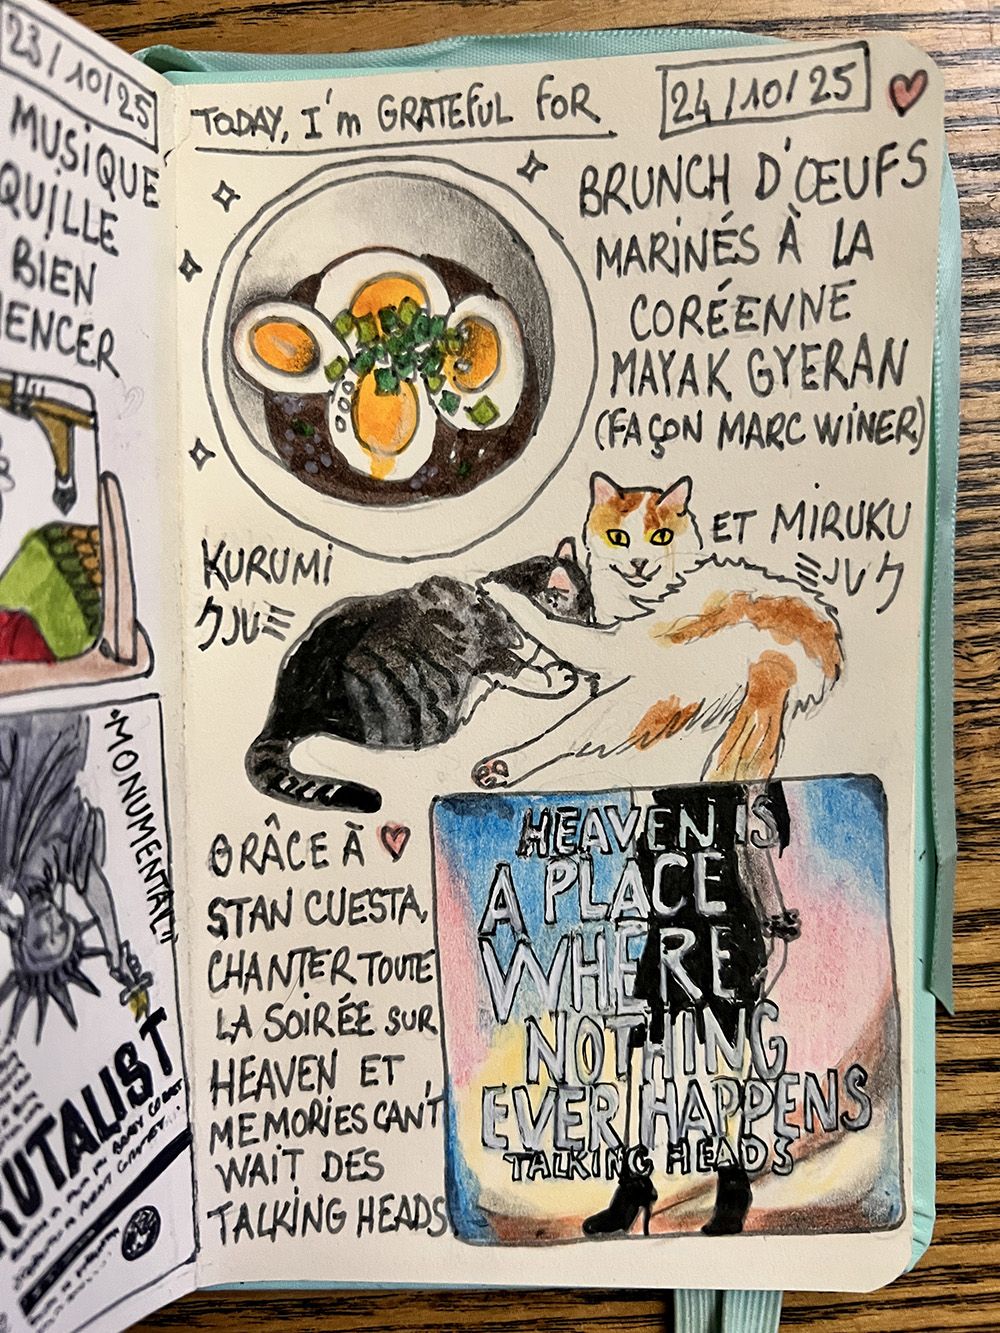 23/10/25
MUSIQUE
QUILLE
BIEN
ENCER
"MONUMENTAL"
RUTALIST
TODAY, I'm GRATEFUL FOR
24/10/25
BRUNCH D'ŒUFS
MARINÉS À LA
CORÉENNE
MAYAK GYERAN
(FAÇON MARC WINER)
KURUMI
クルミ
ET MIRUKU
ミルク
GRÂCE À
STAN CUESTA,
CHANTER TOUTE
LA SOIRÉE SUR
HEAVEN ET
MEMORIES CAN'T
WAIT DES
TALKING HEADS
HEAVEN IS
A PLACE
WHERE
NOTHING
EVER HAPPENS
TALKING HEADS